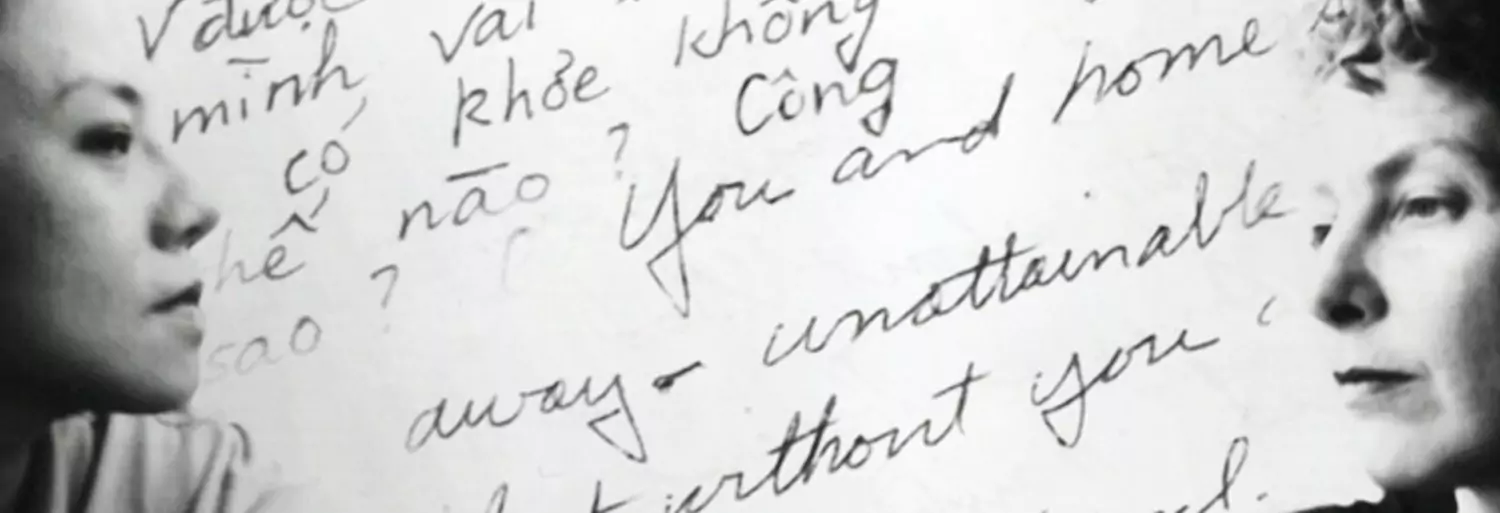 được
mình vai
có khỏe không
hề nào? Công
sao?
You and home
away - unattainable,
without you